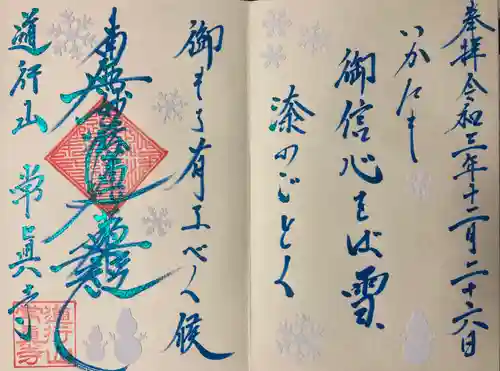 奉拝 令和三年十二月二十六日
いかにも
御信心をば雪
漆のごとく
御もち有るべく候
南無妙法蓮華経
道行山 常眞寺